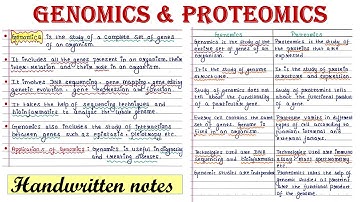 GENOMICS & PROTEOMICS
Genomics is the study of a complete set of genes
of an organism.
It includes all the genes present in an organism, their
work, relation, and their role in an organism.
It involves DNA sequencing, gene mapping, gene editing
genetic evolution, gene expression and function.
It takes the help of sequencing techniques and
bioinformatics to analyze the whole genome.
Genomics also includes the study of interactions
between genes, such as epistasis, pleiotropy etc.
Application of Genomics: Genomics is useful in diagnosing
and treating diseases.
Handwritten notes
Genomics
Genomics is the study of the
entire set of genes of an
organism.
It is the study of genome
structure.
Study of genomics does not
tell about the functionality
of a particular gene
Every cell contains the same
set of genes. Genome is
fixed in an organism.
Techniques used are DNA
sequencing and bioinformatics
Genomic studies are independent
Proteomics
Proteomics is the study of
the proteins that are
expressed
It is the study of protein
structure and expression
Study of proteomics tells
about the functional product
of a gene
Proteome varies in different
types of cell according to
internal and
external factors.
Techniques used are
mass spectrometry
Proteomics takes the help of
genomic studies of proteins
are the functional product
of the genome.